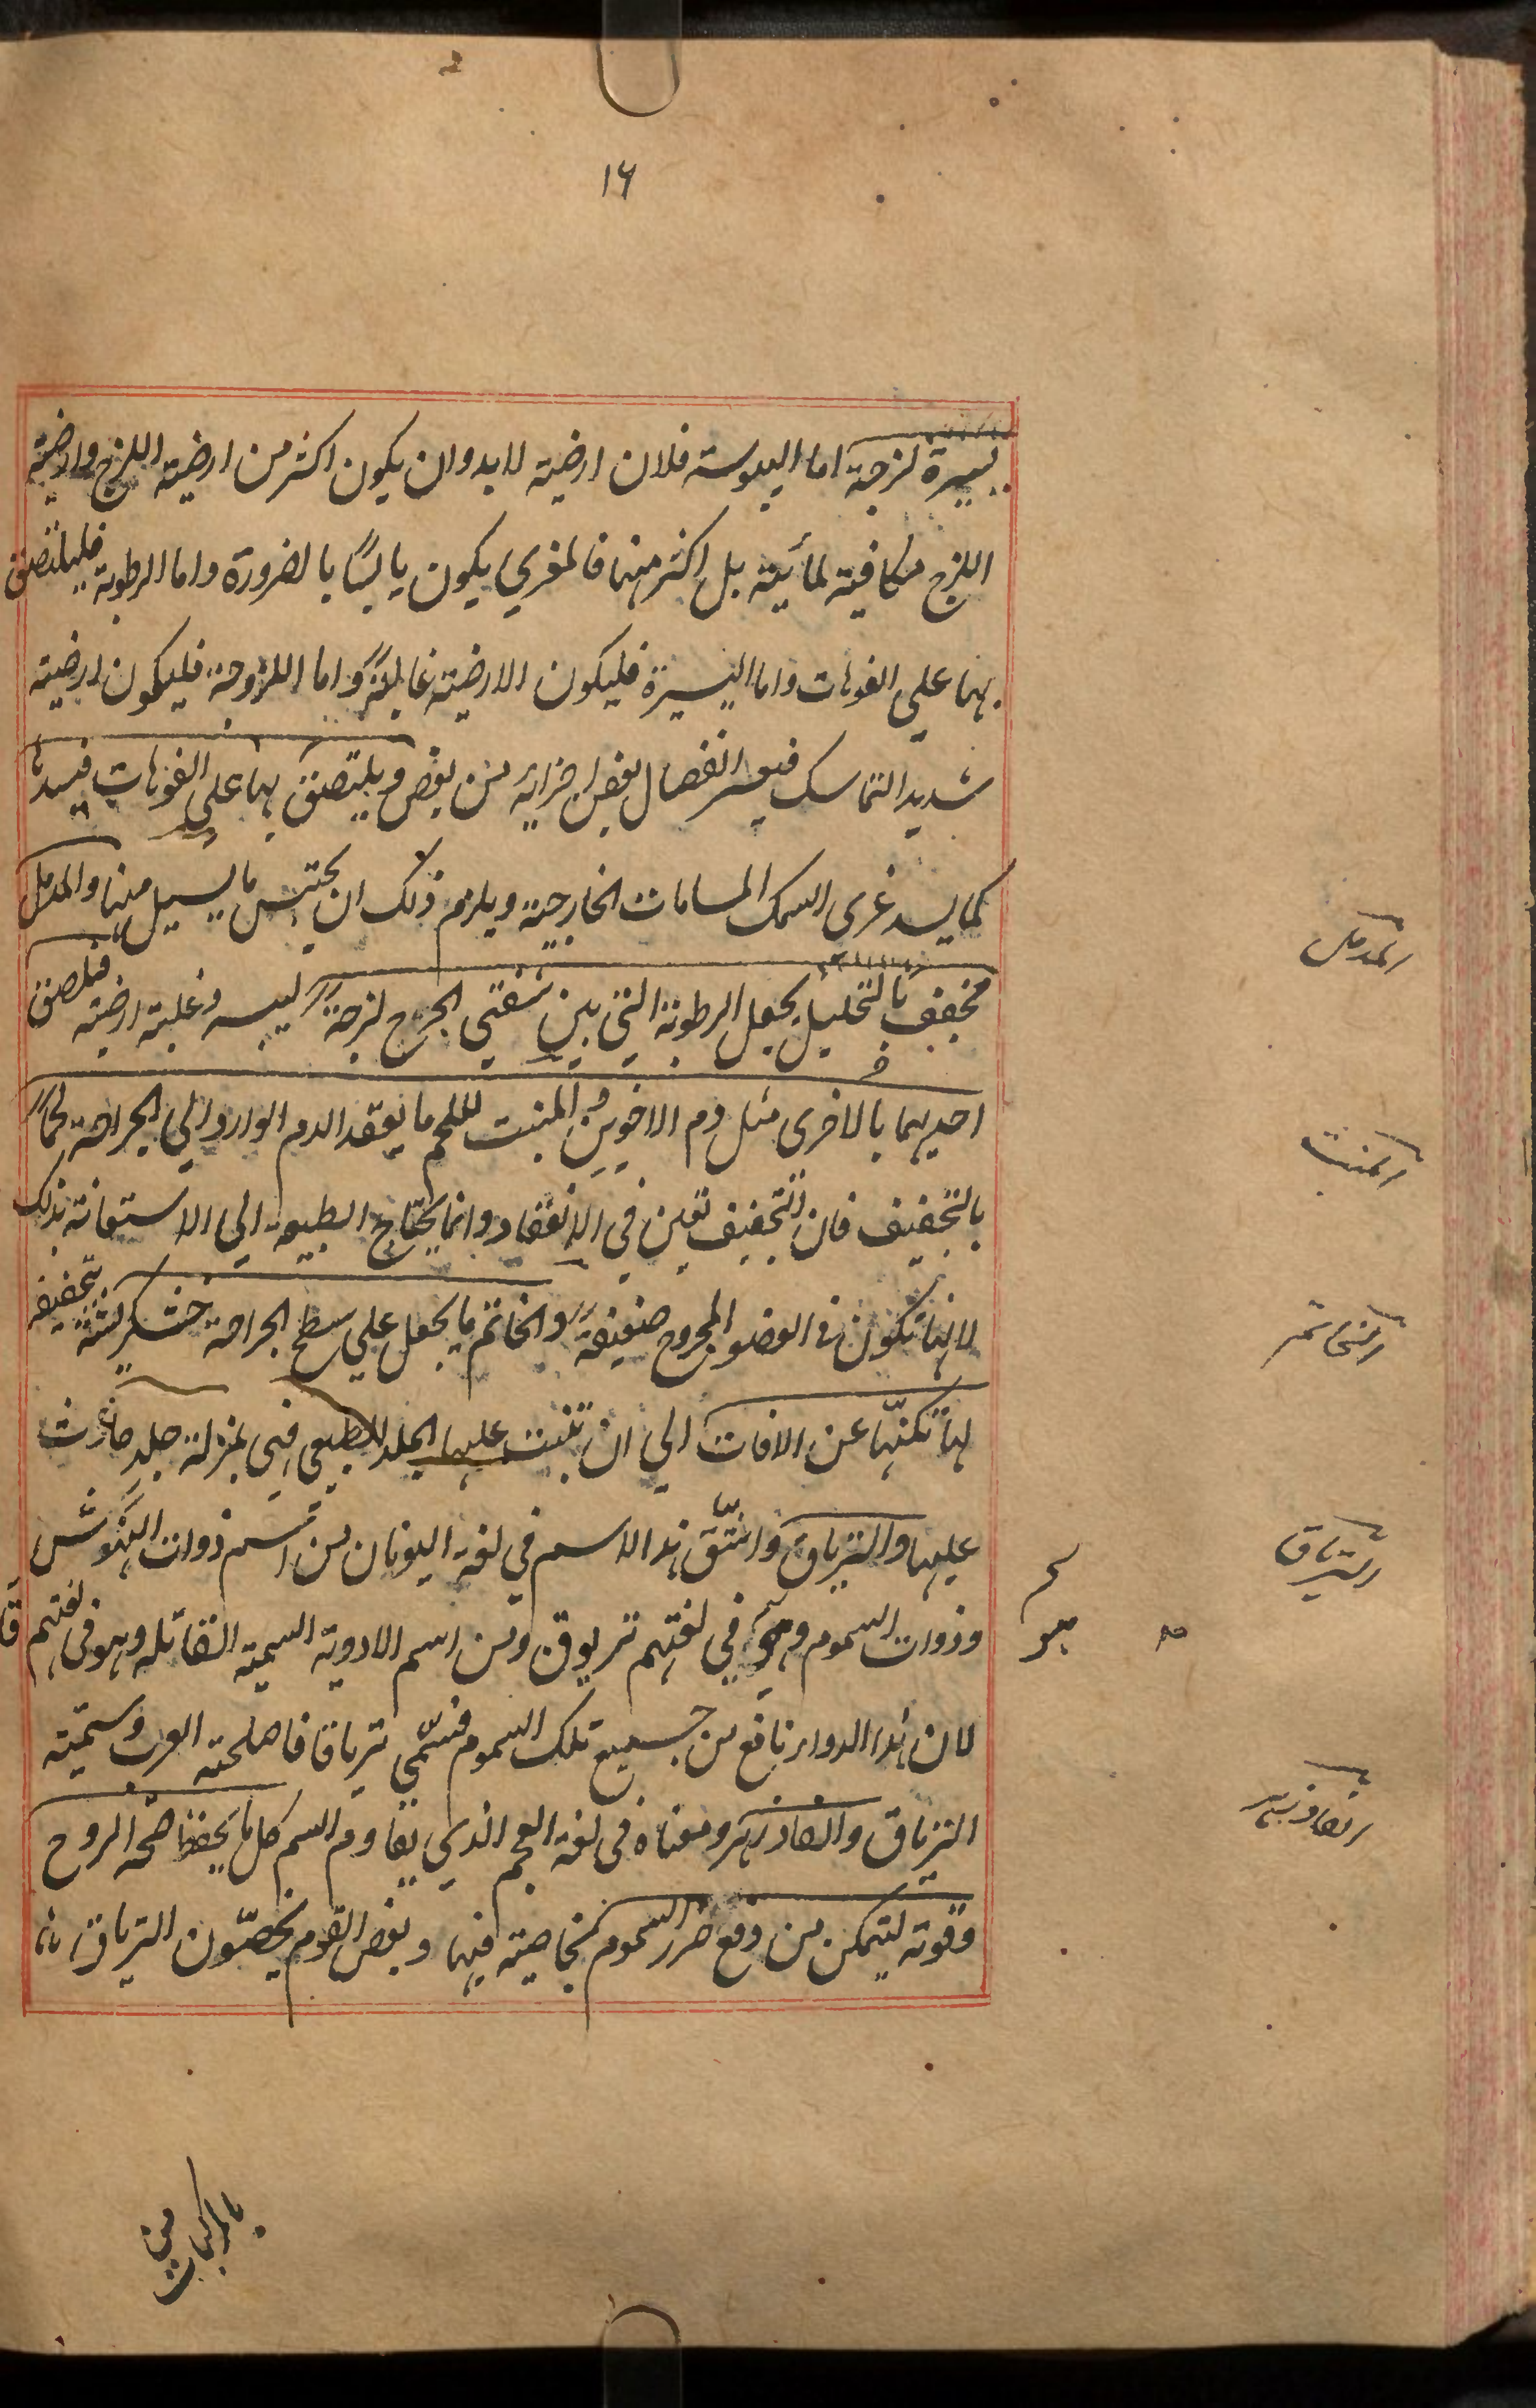 ١٦
يسيرة لزجة اما اليبوسة فلان ارضيته لابد وان يكون اكثر من ارضية اللزج وارضية
اللزج مكافية لمائيته بل اكثر منها فالمغري يكون يابسًا بالضرورة واما الرطوبة فليلتصق
بها على الفوهات واما اليسيرة فليكون الارضية غالبةً واما اللزوجة فليكون ارضيته
شديد التماسك فيعسر انفصال بعض اجزائه من بعض ويلتصق بها على الفوهات فيسدها
كما يسد غرى السمك المسامات الخارجية ويلزم ذلك ان يحتبس ما يسيل منها والمدمل
المدمل
مخفف بالتحليل يجعل الرطوبة التي بين شفتي الجرح لزجةً ليبسه وغلبة ارضيته فتلصق
احديهما بالاخرى مثل دم الاخوين والمنبت للحم ما يعقد الدم الوارد الي الجراحة لحمًا
المنبت
بالتجفيف فان التجفيف تعين في الانعقاد وانما يحتاج الطبيعة الي الاستعانة بذلك
لانها تكون في العضو المجروح ضعيفةً والخاتم ما يجعل علي سطح الجراحة خشكريشة بتجفيفه
الخاتم
لها تكنّها عن الافات الي ان تنبت عليها الجلد الطبيعي فهي بمنزلة جلدٍ حادث
عليها والترياق واشتّق هذا الاسم في لغة اليونان من اسم ذوات النهوش
الترياق
وذوات السموم وهو في لغتهم تريوق ومن اسم الادوية السمية القاتلة وهو في لغتهم قا
لان هذا الدواء نافع من جميع تلك السموم فسّمي ترياقا فاصلحته العرب وسمّته
الترياق والفادزهر ومعناه في لغة العجم الذي يقاوم السم كل ما يحفظ صحة الروح
الفادزهر
وقوته ليتمكن من دفع ضرر السموم بخاصية فيها وبعض القوم يخصّون الترياق
بالمركبات من